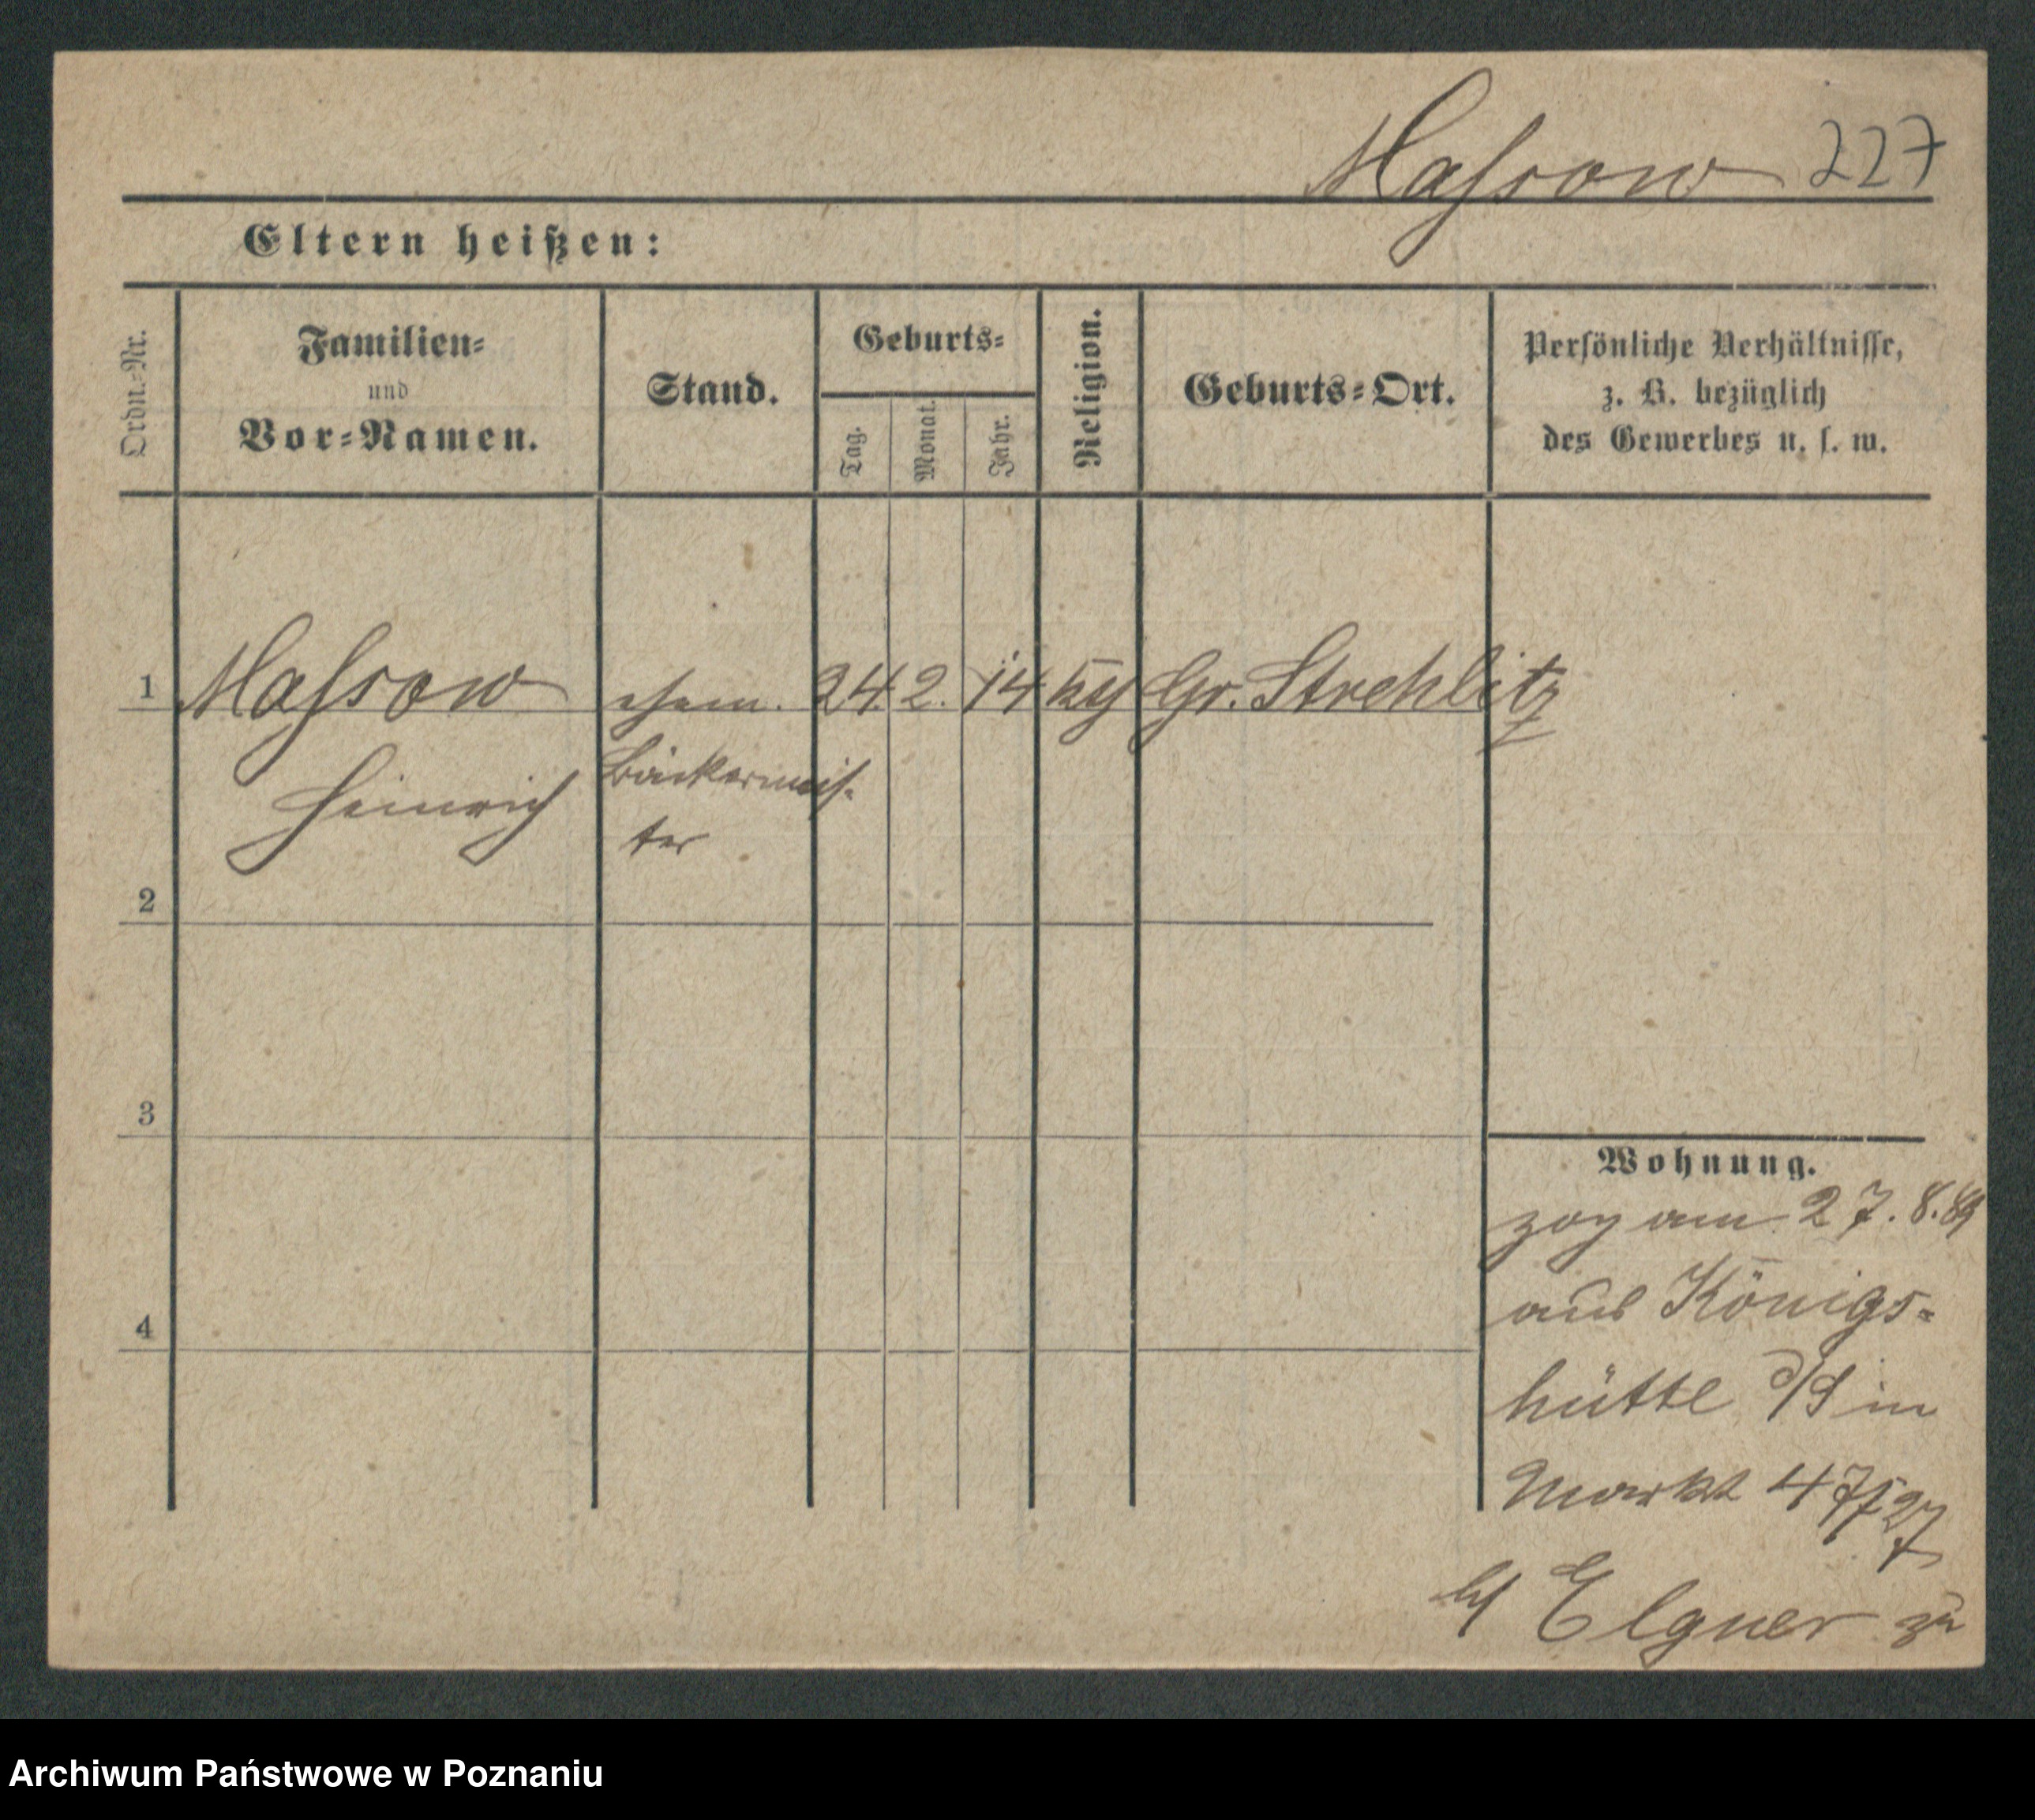 Massow 227
Eltern heißen:
Ordn.-Nr.
Familien-
und
Vor-Namen.
Stand.
Geburts-
Tag.
Monat.
Jahr.
Religion.
Geburts-Ort.
Persönliche Verhältnisse,
z. B. bezüglich
des Gewerbes u. s. w.
1 Massow ehem. 24. 2. 14 kg Gr. Strehlitz
Heinrich Bäckermeis-
ter
2
3
4
Wohnung.
zog am 27. 8. 89
aus Königs-
hütte O/S in
Markt 47/
b/ Elgner zu
Archiwum Państwowe w Poznaniu